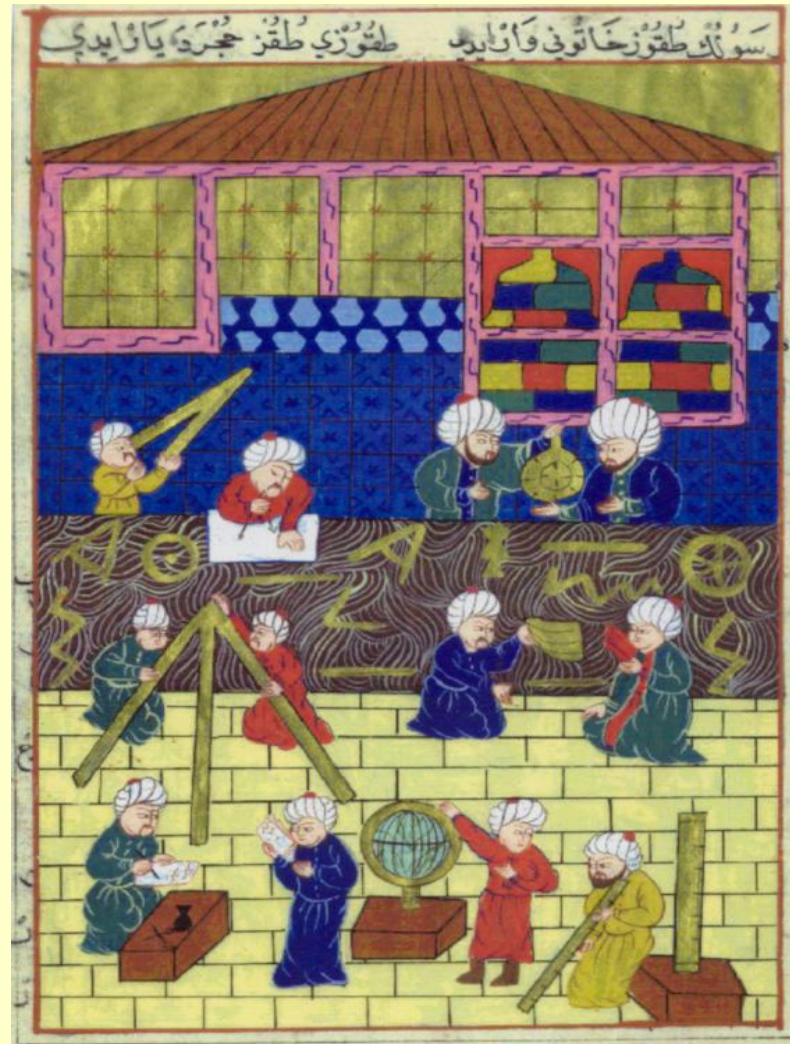 سَوُنُكْ طُقُوز خَاتُونِي وَارْايدِي طقُوُزِي طُقُز حُجْرَدَه يَارْايدِي